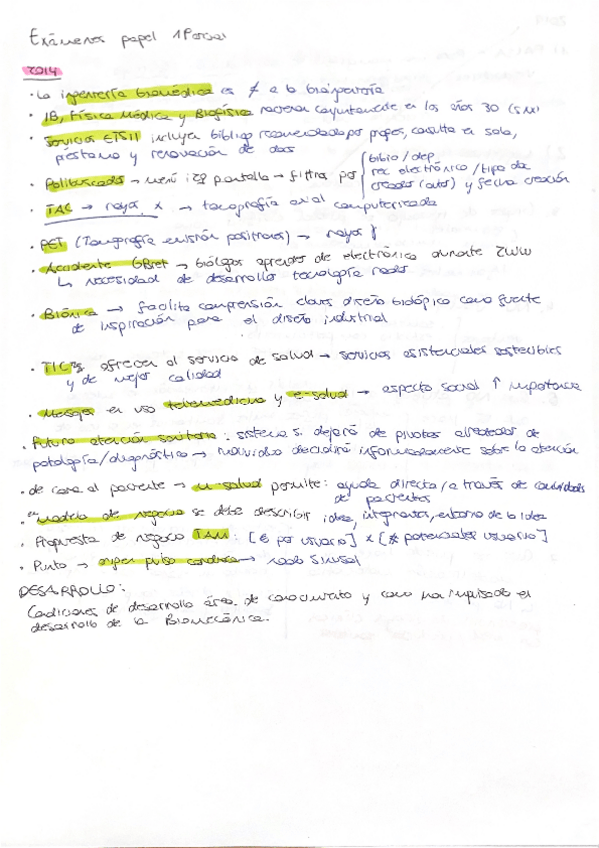 Exámenes papel 1 Parcial
2014
· La ingeniería biomédica es ≠ a la bioingeniería
· IB, Física Médica y Biofísica nacieron conjuntamente en los años 30 (S.XX)
· Servicios ETSIT incluyen bibliog recomendada por profes, consulta en sala,
préstamo y renovación de docs
· Polibuscador → menú izq pantalla → filtra por { biblio/dep
rec electrónico / tipo doc
creador (autor) y fecha creación
· TAC → rayos x → tomografía axial computerizada
· PET (Tomografía emisión positrones) → rayos γ
· Accidente GBret → biólogos aprenden de electrónica durante 2WW
↳ necesidad de desarrollar tecnología radar
· Biónica → facilita comprensión claves diseño biológico como fuente
de inspiración para el diseño industrial
· TICs ofrecen al servicio de salud → servicios asistenciales sostenibles
y de mejor calidad
· Mensajes en uso telemedicina y e-salud → aspecto social ↑ importancia
· Futuro atención sanitaria: sistema s. dejará de pivotar alrededor de
patología/diagnóstico → individuo decidirá informadamente sobre la atención
· de cara al paciente → m-salud permite: ayuda directa / a través de comunidades
de pacientes
· en Modelo de negocio se debe describir idea, integrantes, entorno de la idea
· Propuesta de negocio TAM: [€ por usuario] x [# potenciales usuarios]
· Punto → origen pulso cardiaco → nodo sinusal
DESARROLLO:
Condiciones de desarrollo áreas de conocimiento y como han impulsado el
desarrollo de la Biomecánica.